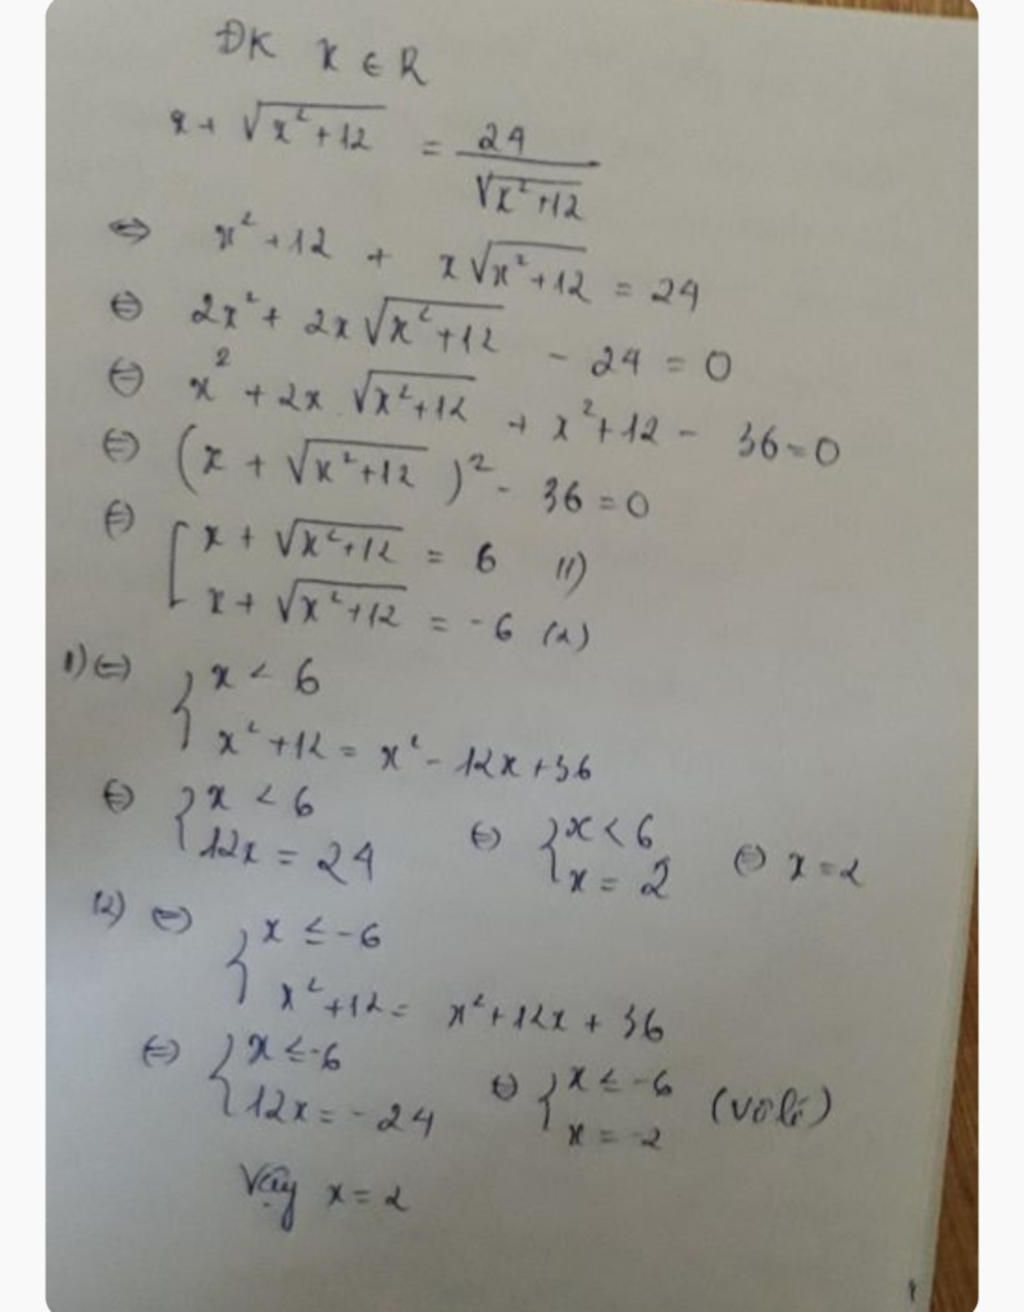 ĐK x ∈ R
x + √(x²+12) = 24/√(x²+12)
⇔ x²+12 + x√(x²+12) = 24
⇔ 2x² + 2x√(x²+12) - 24 = 0
⇔ x² + 2x √(x²+12) + x²+12 - 36 = 0
⇔ (x + √(x²+12))² - 36 = 0
⇔ [ x + √(x²+12) = 6 (1)
x + √(x²+12) = -6 (2)
1) ⇔ { x < 6
x²+12 = x² - 12x + 36
⇔ { x < 6 ⇔ { x < 6 ⇔ x = 2
12x = 24 x = 2
(2) ⇔ { x ≤ -6
x²+12 = x² + 12x + 36
⇔ { x ≤ -6 ⇔ { x ≤ -6 (vô lí)
12x = -24 x = -2
Vậy x = 2